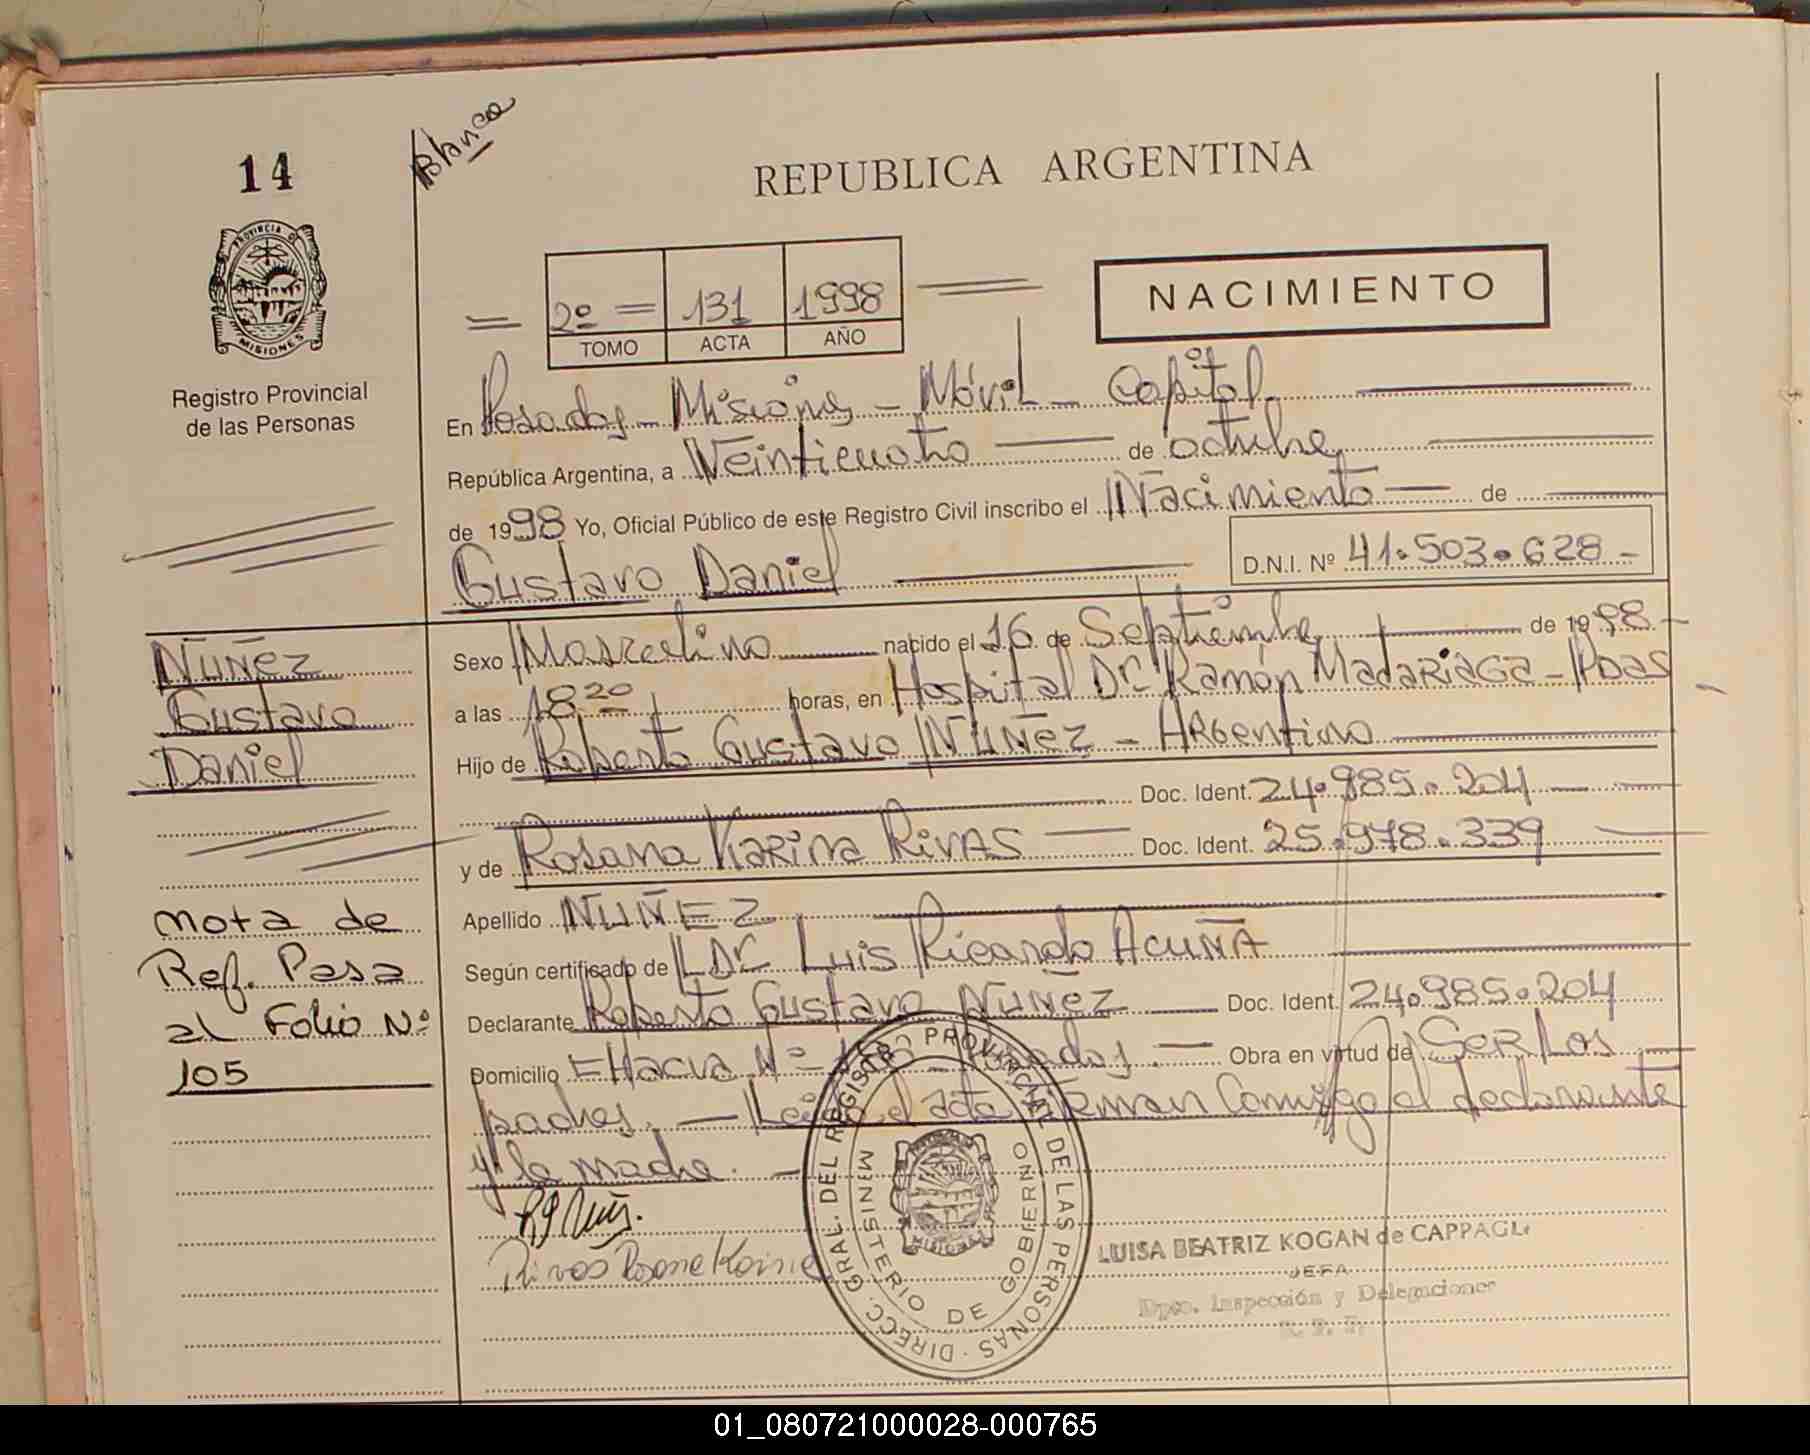 14
Blanca
REPUBLICA ARGENTINA
PROVINCIA DE
MISIONES
Registro Provincial
de las Personas
2º 131 1998
TOMO ACTA AÑO
NACIMIENTO
En Posadas - Misiones - Móvil - Capital
República Argentina, a Veinticuatro de octubre
de 1998 Yo, Oficial Público de este Registro Civil inscribo el Nacimiento de
Gustavo Daniel D.N.I. Nº 41.503.628 -
Nuñez
Gustavo
Daniel
Sexo Masculino nacido el 16 de Septiembre de 1998 -
a las 18 20 horas, en Hospital Dr Ramón Madariaga - Pdas -
Hijo de Roberto Gustavo Nuñez - Argentino
Doc. Ident. 24.985.204
y de Rosana Karina Rivas Doc. Ident. 25.978.339
Apellido NUÑEZ
Según certificado de Dr Luis Ricardo Acuña
Declarante Roberto Gustavo Nuñez Doc. Ident. 24.985.204
Domicilio Posadas. - Obra en virtud de Ser los
padres. - Leída el acta Firman Conmigo el declarante
y la madre. -
nota de
Ref. Pasa
al Folio Nº
105
Rivas Rosana Karina
DIRECC. GRAL. DEL REGISTRO PROVINCIAL DE LAS PERSONAS
MINISTERIO DE GOBIERNO
MISIONES
LUISA BEATRIZ KOGAN de CAPPAGLI
JEFA
Dpto. Inspección y Delegaciones
01_080721000028-000765